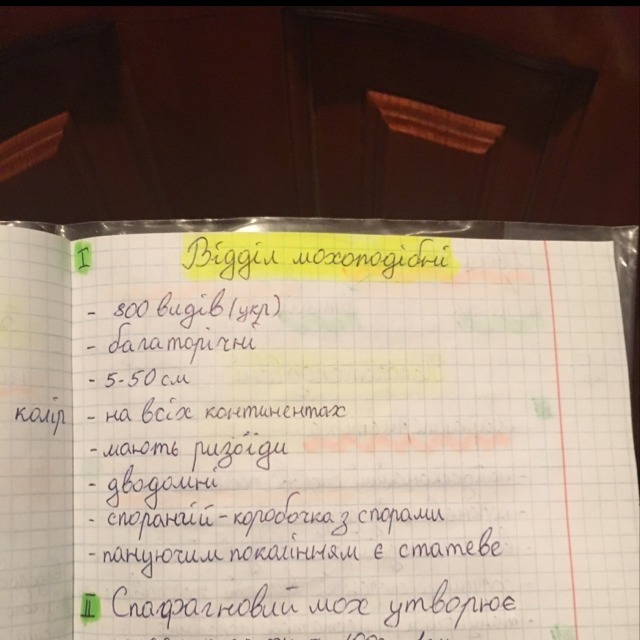 I Відділ мохоподібні
- 800 видів (укр)
- багаторічні
- 5-50 см
колір
- на всіх континентах
- мають ризоїди
- дводомні
- спорангій - коробочка з спорами
- пануючим поколінням є статеве
II Спагфагновий мох утворює